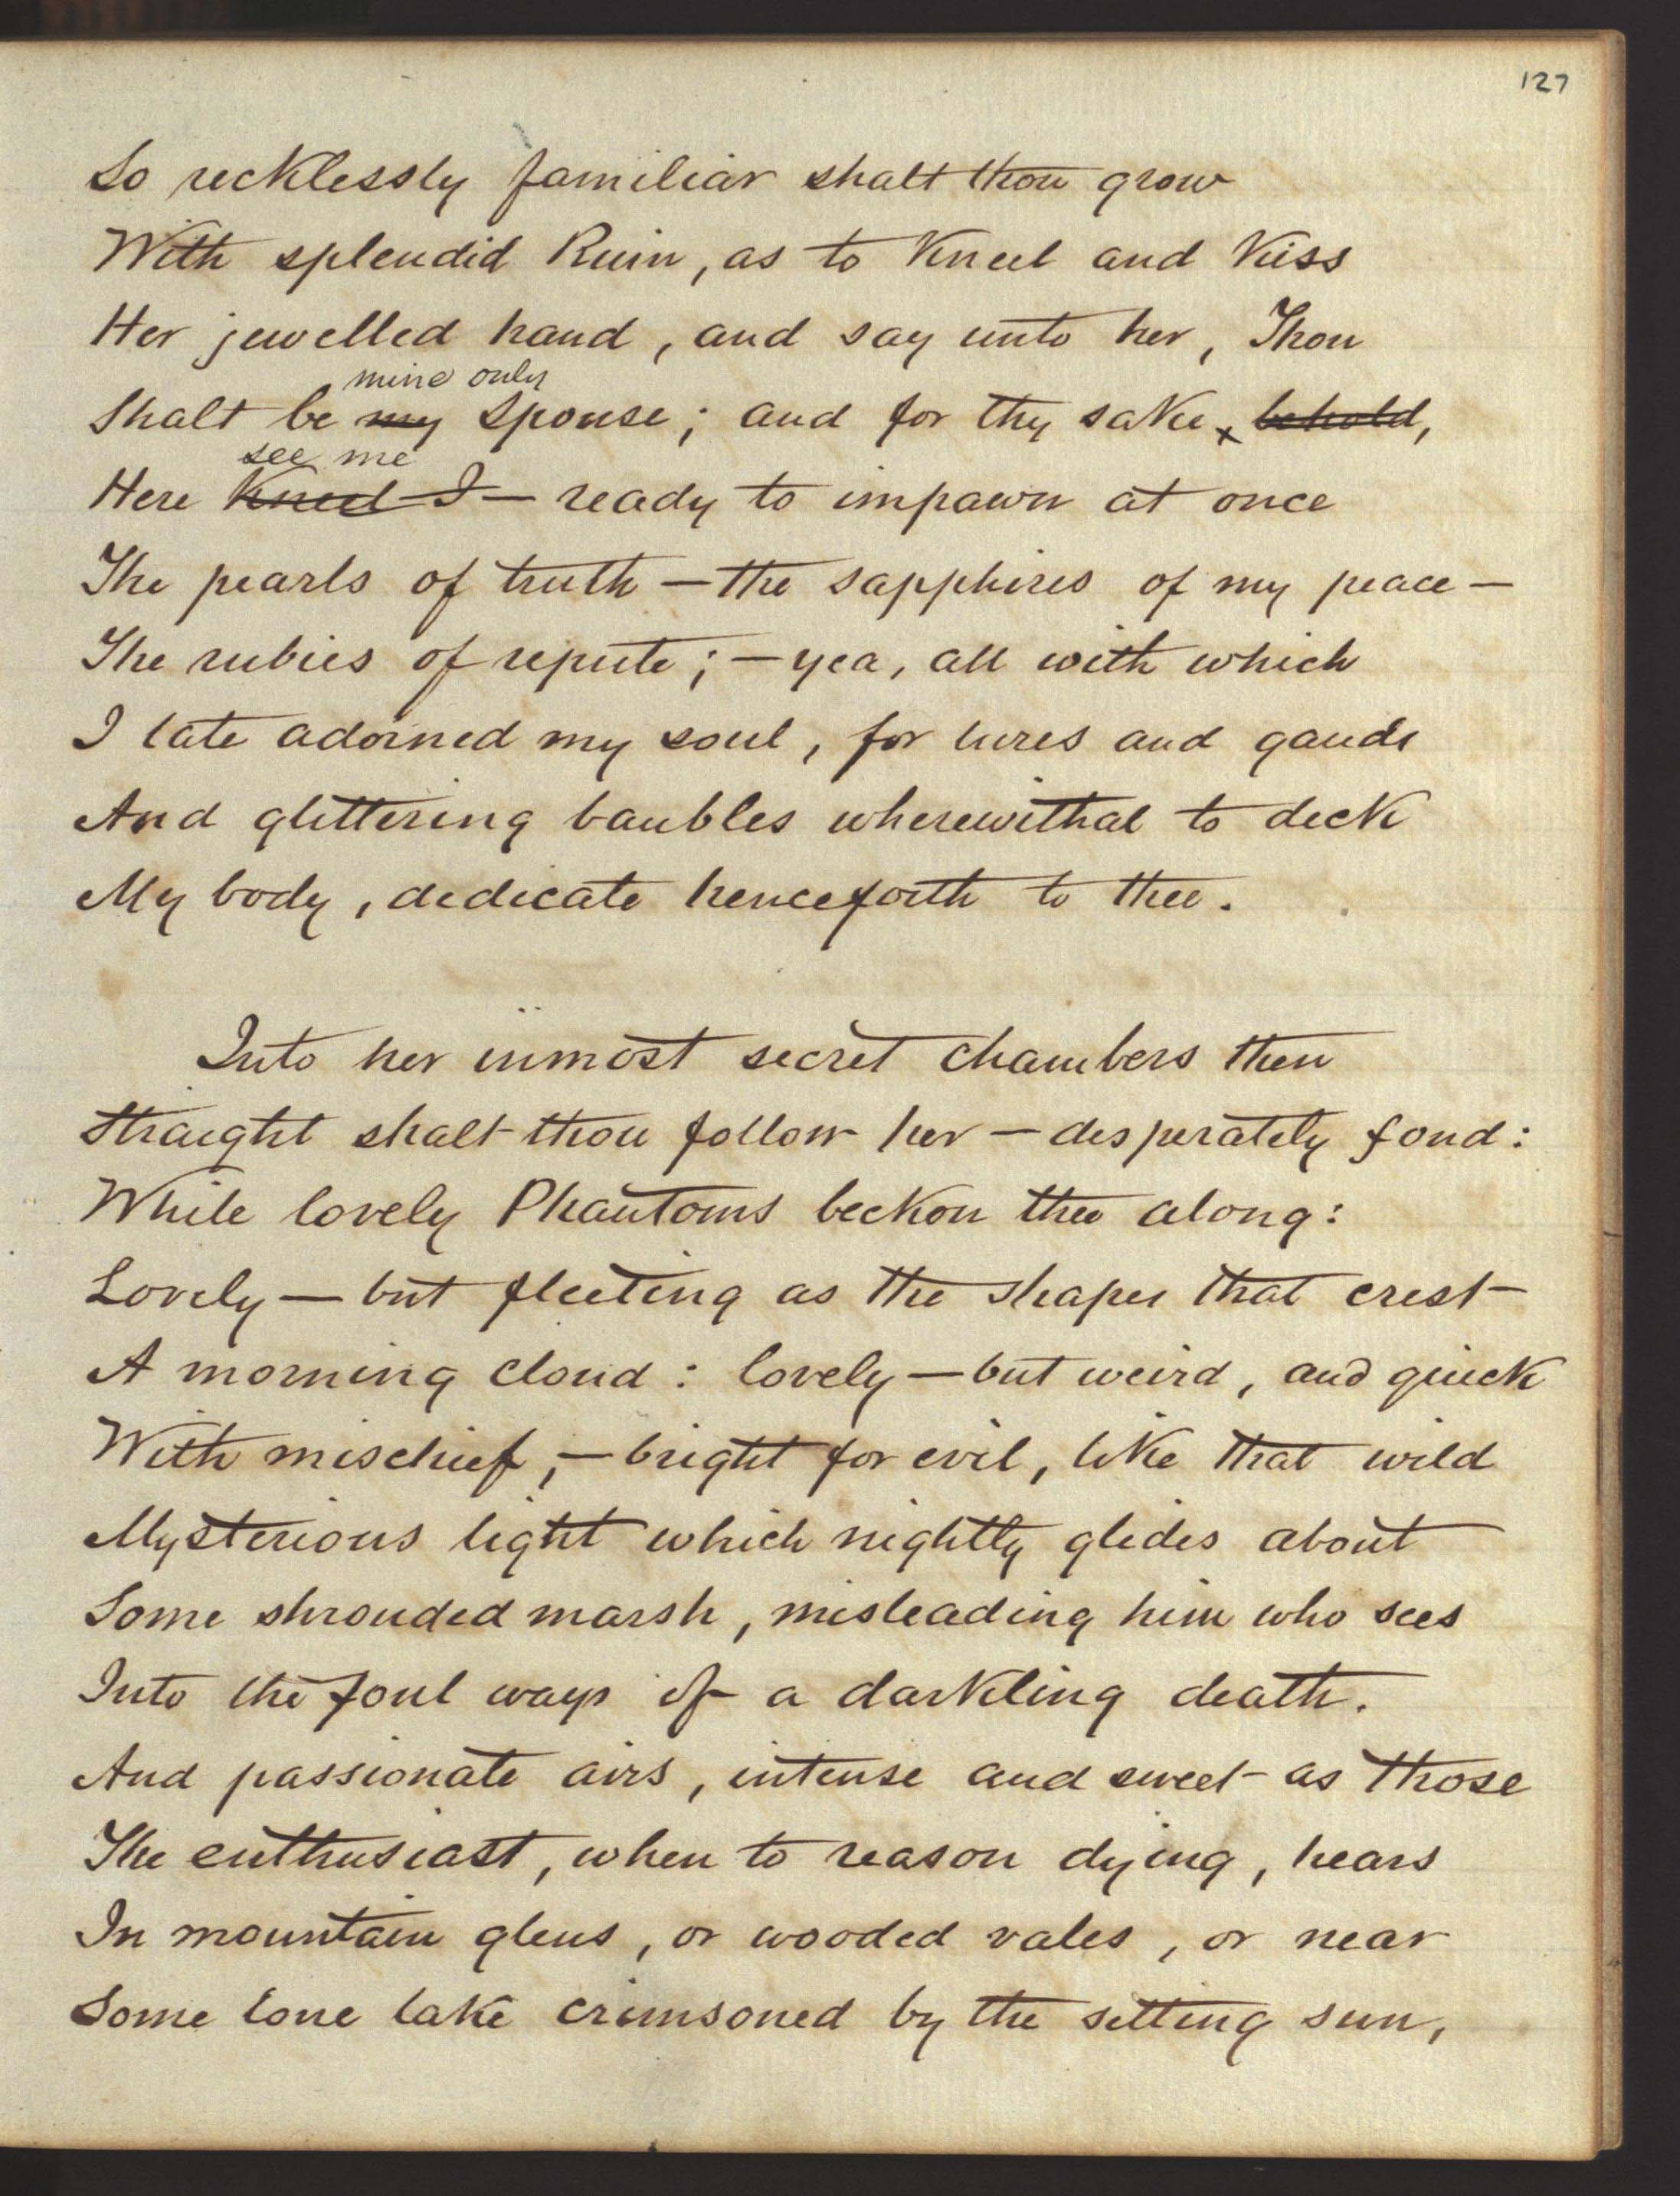 127
So recklessly familiar shalt thou grow
With splendid Ruin, as to kneel and kiss
Her jewelled hand, and say unto her, Thou
mine only
Shalt be my Spouse; and for thy sake x behold,
see me
Here kneel I — ready to impawn at once
The pearls of truth — the sapphires of my peace —
The rubies of repute; — yea, all with which
I late adorned my soul, for lures and gauds
And glittering baubles wherewithal to deck
My body, dedicate henceforth to thee.
Into her inmost secret chambers then
Straight shalt thou follow her — desperately fond:
While lovely Phantoms beckon thee along:
Lovely — but fleeting as the shapes that crest
A morning cloud: lovely — but weird, and quick
With mischief, — bright for evil, like that wild
Mysterious light which nightly glides about
Some shrouded marsh, misleading him who sees
Into the foul ways of a darkling death.
And passionate airs, intense and sweet as those
The enthusiast, when to reason dying, hears
In mountain glens, or wooded vales, or near
Some lone lake crimsoned by the setting sun,